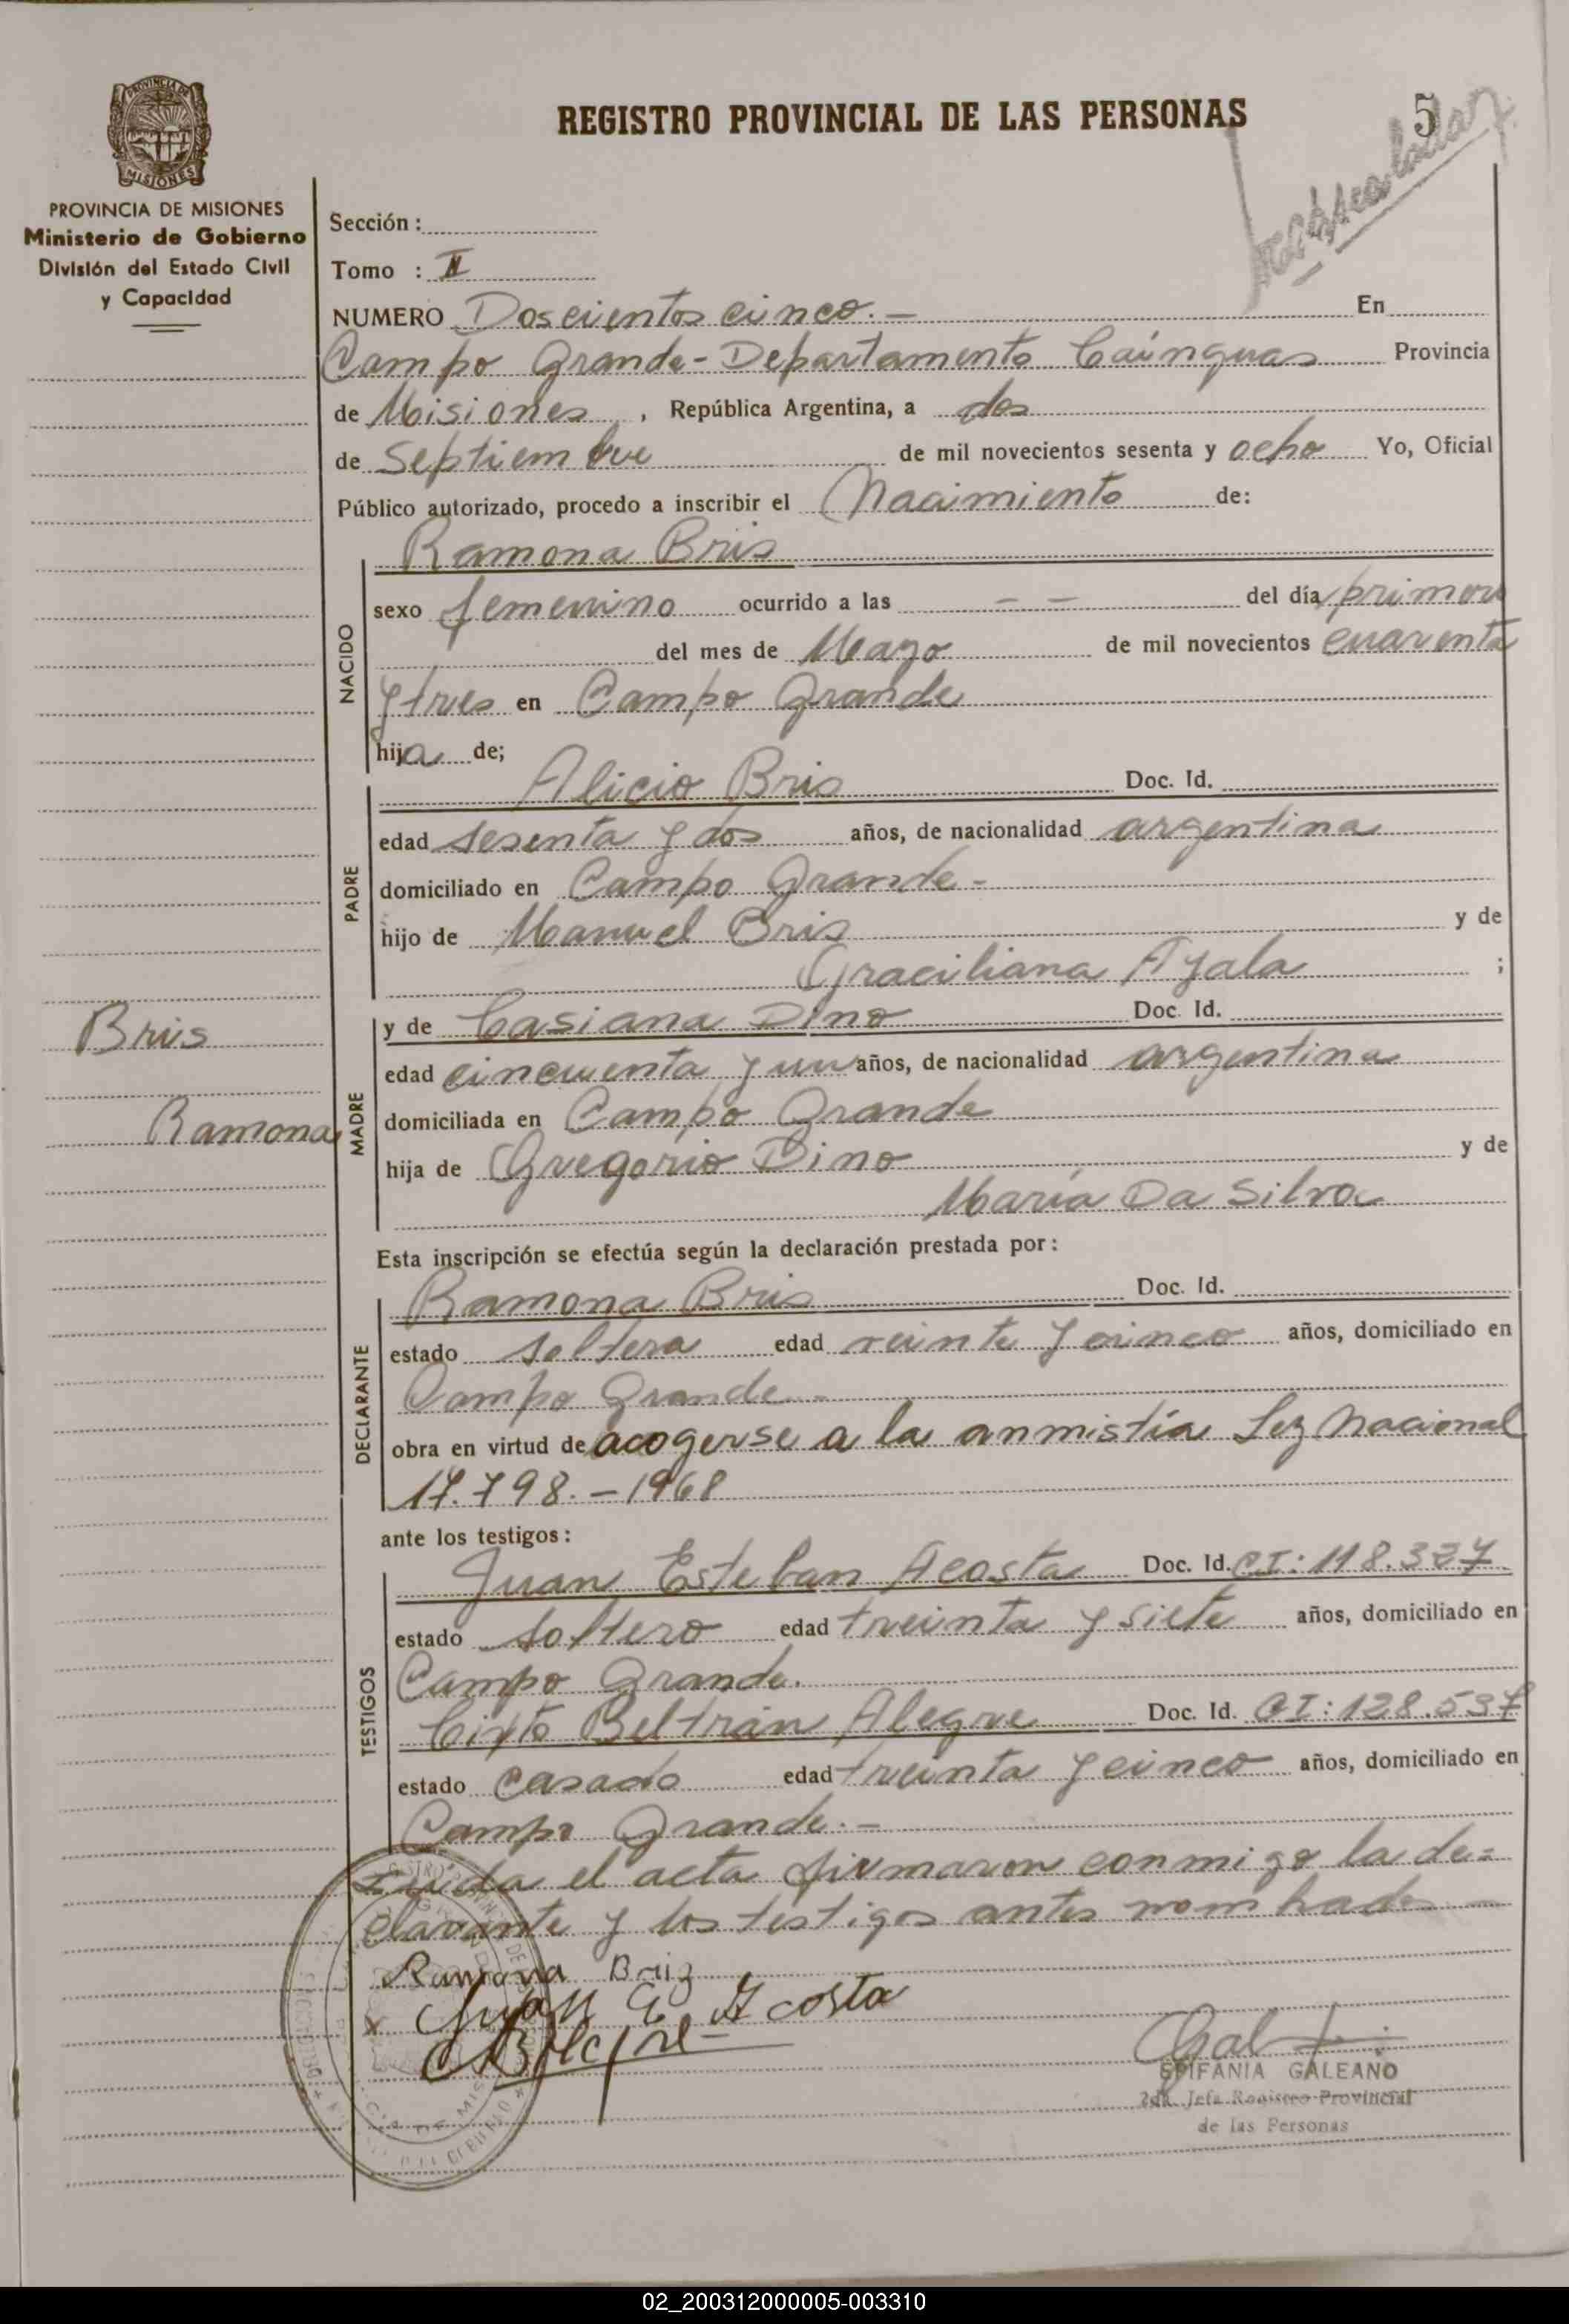 REGISTRO PROVINCIAL DE LAS PERSONAS
5
PROVINCIA DE MISIONES
PROVINCIA DE MISIONES
Ministerio de Gobierno
División del Estado Civil
y Capacidad
Sección:
Tomo : II
NUMERO Doscientos cinco.— En
Campo Grande - Departamento Cainguas Provincia
de Misiones, República Argentina, a dos
de Septiembre de mil novecientos sesenta y ocho Yo, Oficial
Público autorizado, procedo a inscribir el Nacimiento de:
NACIDO
Ramona Bris
sexo femenino ocurrido a las — — del día primero
del mes de Mayo de mil novecientos cuarenta
y tres en Campo Grande
hija de;
PADRE
Alicio Bris Doc. Id.
edad sesenta y dos años, de nacionalidad argentina
domiciliado en Campo Grande-
hijo de Manuel Bris y de
Graciliana Ayala ;
Bris
Ramona
MADRE
y de Casiana Dino Doc. Id.
edad cincuenta y un años, de nacionalidad argentina
domiciliada en Campo Grande
hija de Gregorio Dino y de
María Da Silva
Esta inscripción se efectúa según la declaración prestada por:
DECLARANTE
Ramona Bris Doc. Id.
estado soltera edad veinte y cinco años, domiciliado en
Campo Grande-
obra en virtud de acogerse a la anmistía Ley Nacional
17.798.-1968
ante los testigos:
TESTIGOS
Juan Esteban Acosta Doc. Id. CI: 118.327
estado soltero edad treinta y siete años, domiciliado en
Campo Grande.
Cixto Beltrán Alegre Doc. Id. CI: 128.537
estado casado edad treinta y cinco años, domiciliado en
Campo Grande.—
el acta firmaron conmigo la de=
clarante y los testigos antes nombrados —
Ramona Briz
x Juan E. Acosta
EPIFANIA GALEANO
2da. Jefa Registro Provincial
de las Personas
02_200312000005-003310